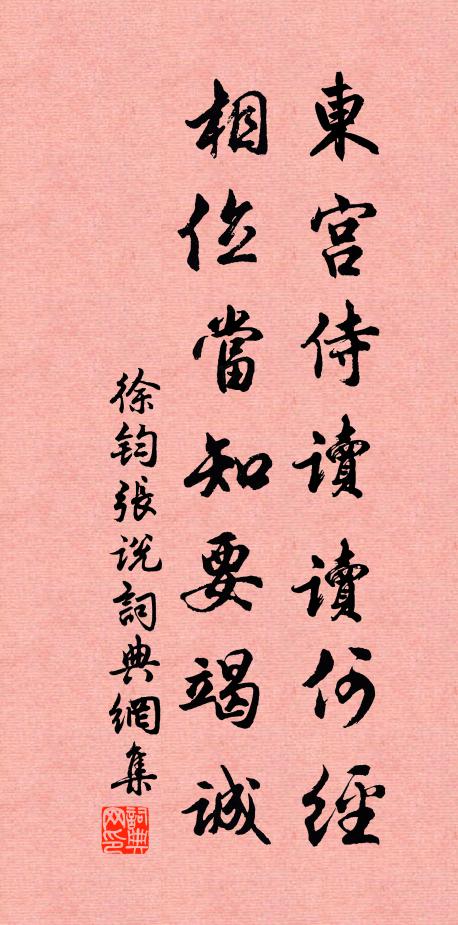 東宮侍讀讀何經
相位當知要竭誠
徐鈞張説詞典網集
詞典网印